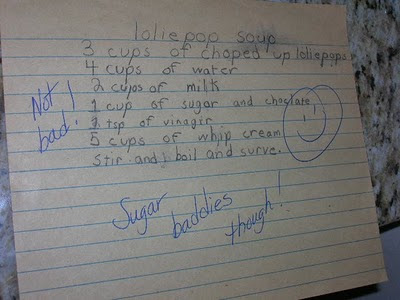 loliepop soup
3 cups of choped up loliepops
4 cups of water
2 cups of milk
1 cup of sugar and choclate
1 tsp of vinagir
5 cups of whip cream
Stir and boil and surve.
Not
bad!
Sugar
baddies
though!